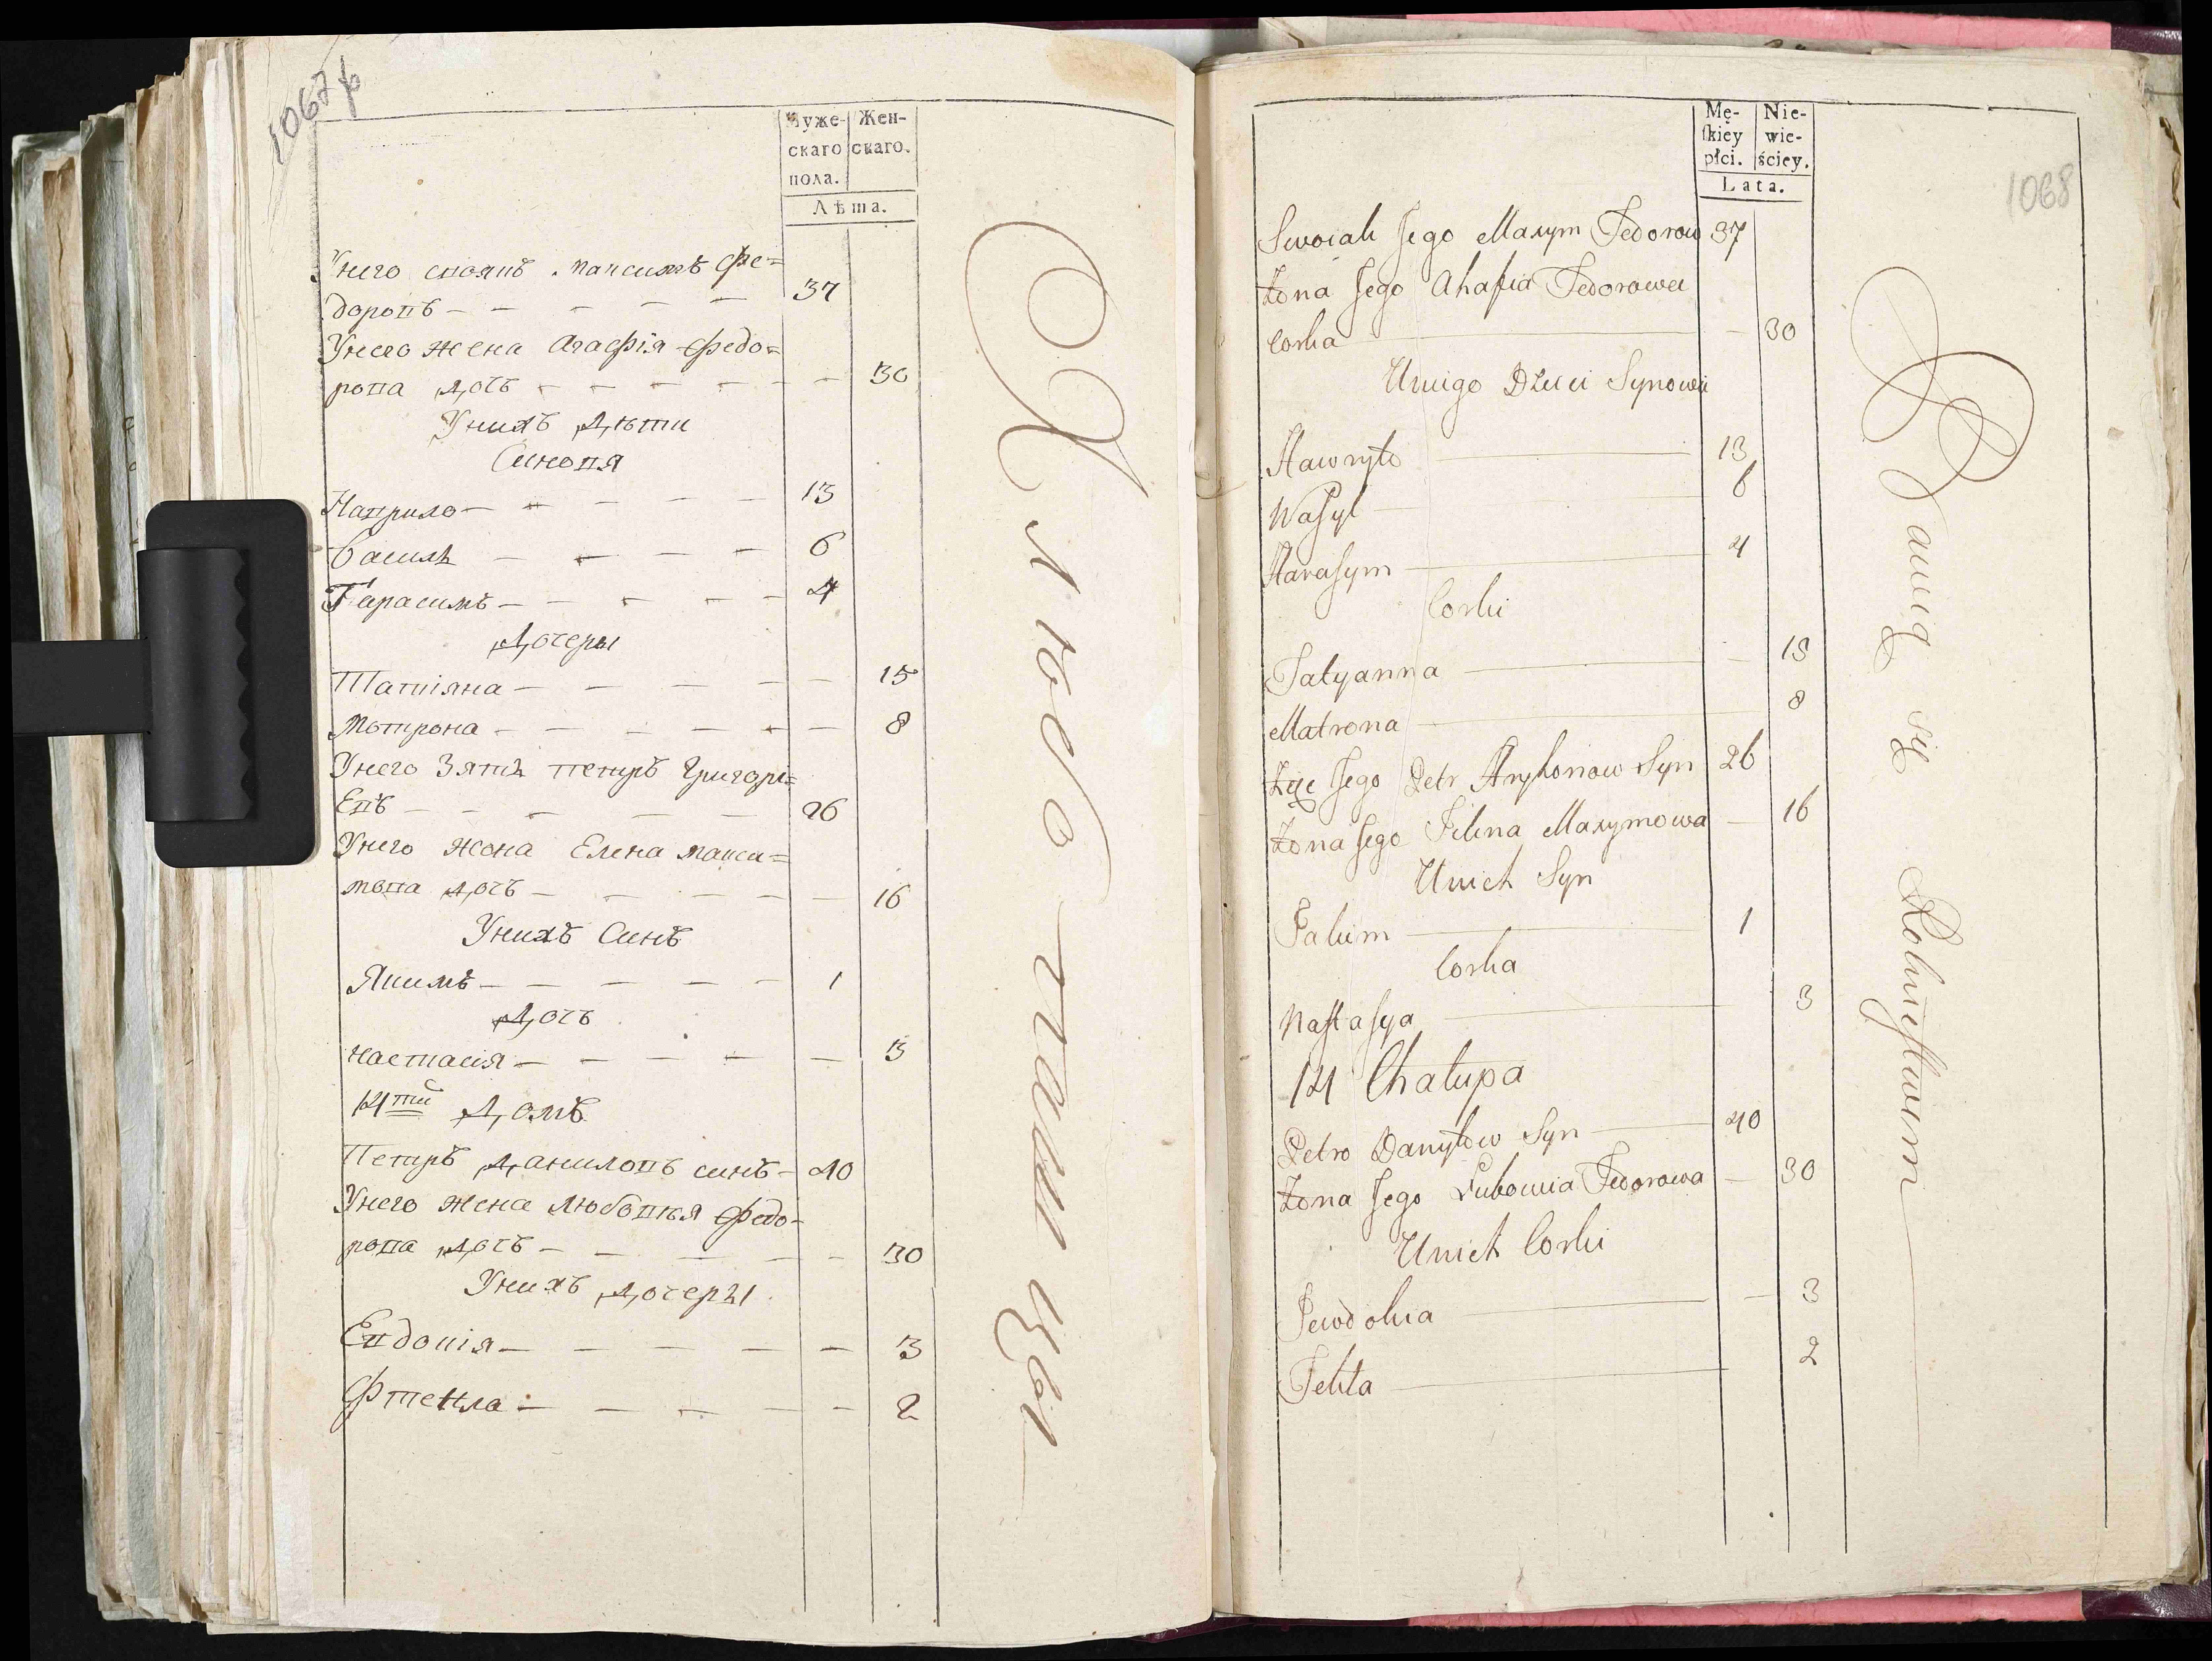 1067
Муже-
скаго
пола.
Жен-
скаго.
Лѣта.
Унего споякъ Максимъ Фе=
доровъ — — — — — 37
Унего жена Агафія Федо=
рова дочъ — — — — — 30
Унихъ Дѣти
Синовя
Наврило — — — — — 13
Василь — — — — 6
Гарасимъ — — — — — 4
Дочеры
Татіяна — — — — — 15
Мотрона — — — — — — 8
Унего Зять Петръ Григорі=
Евъ — — — — — 26
Унего жона Елена Макси=
мова дочъ — — — — — 16
Унихъ Синъ
Якимъ — — — — — 1
Дочъ
Настасія — — — — — 3
14тй Домъ
Петръ Даниловъ синъ — 40
Унего жена Любовья Федо-
рова дочъ — — — — — 30
Унихъ дочеры
Евдокія — — — — — 3
Фтекла — — — — — 2
1068
Mę-
ſkiey
płci.
Nie-
wie-
ściey.
Lata.
Swoiak Jego Maxym Fedorow 37
Żona Jego Ahafia Fedorowa
Corka — — 30
Uniego Dzieci Synowie
Hawryło — 13
Waſyl — 6
Haraſym — 4
Corki
Tatyanna — — 15
Matrona — 8
Zięć Jego Petr Hryhoriow Syn 26
Żona Jego Jelina Maxymowa — 16
Unich Syn
Jakim — 1
Corka
Naſtaſya — 3
14 Chałupa
Petro Daniłow Syn — 40
Żona Jego Lubowia Fedorowa — 30
Unich Corki
Jewdokia — — 3
Tekla — 2